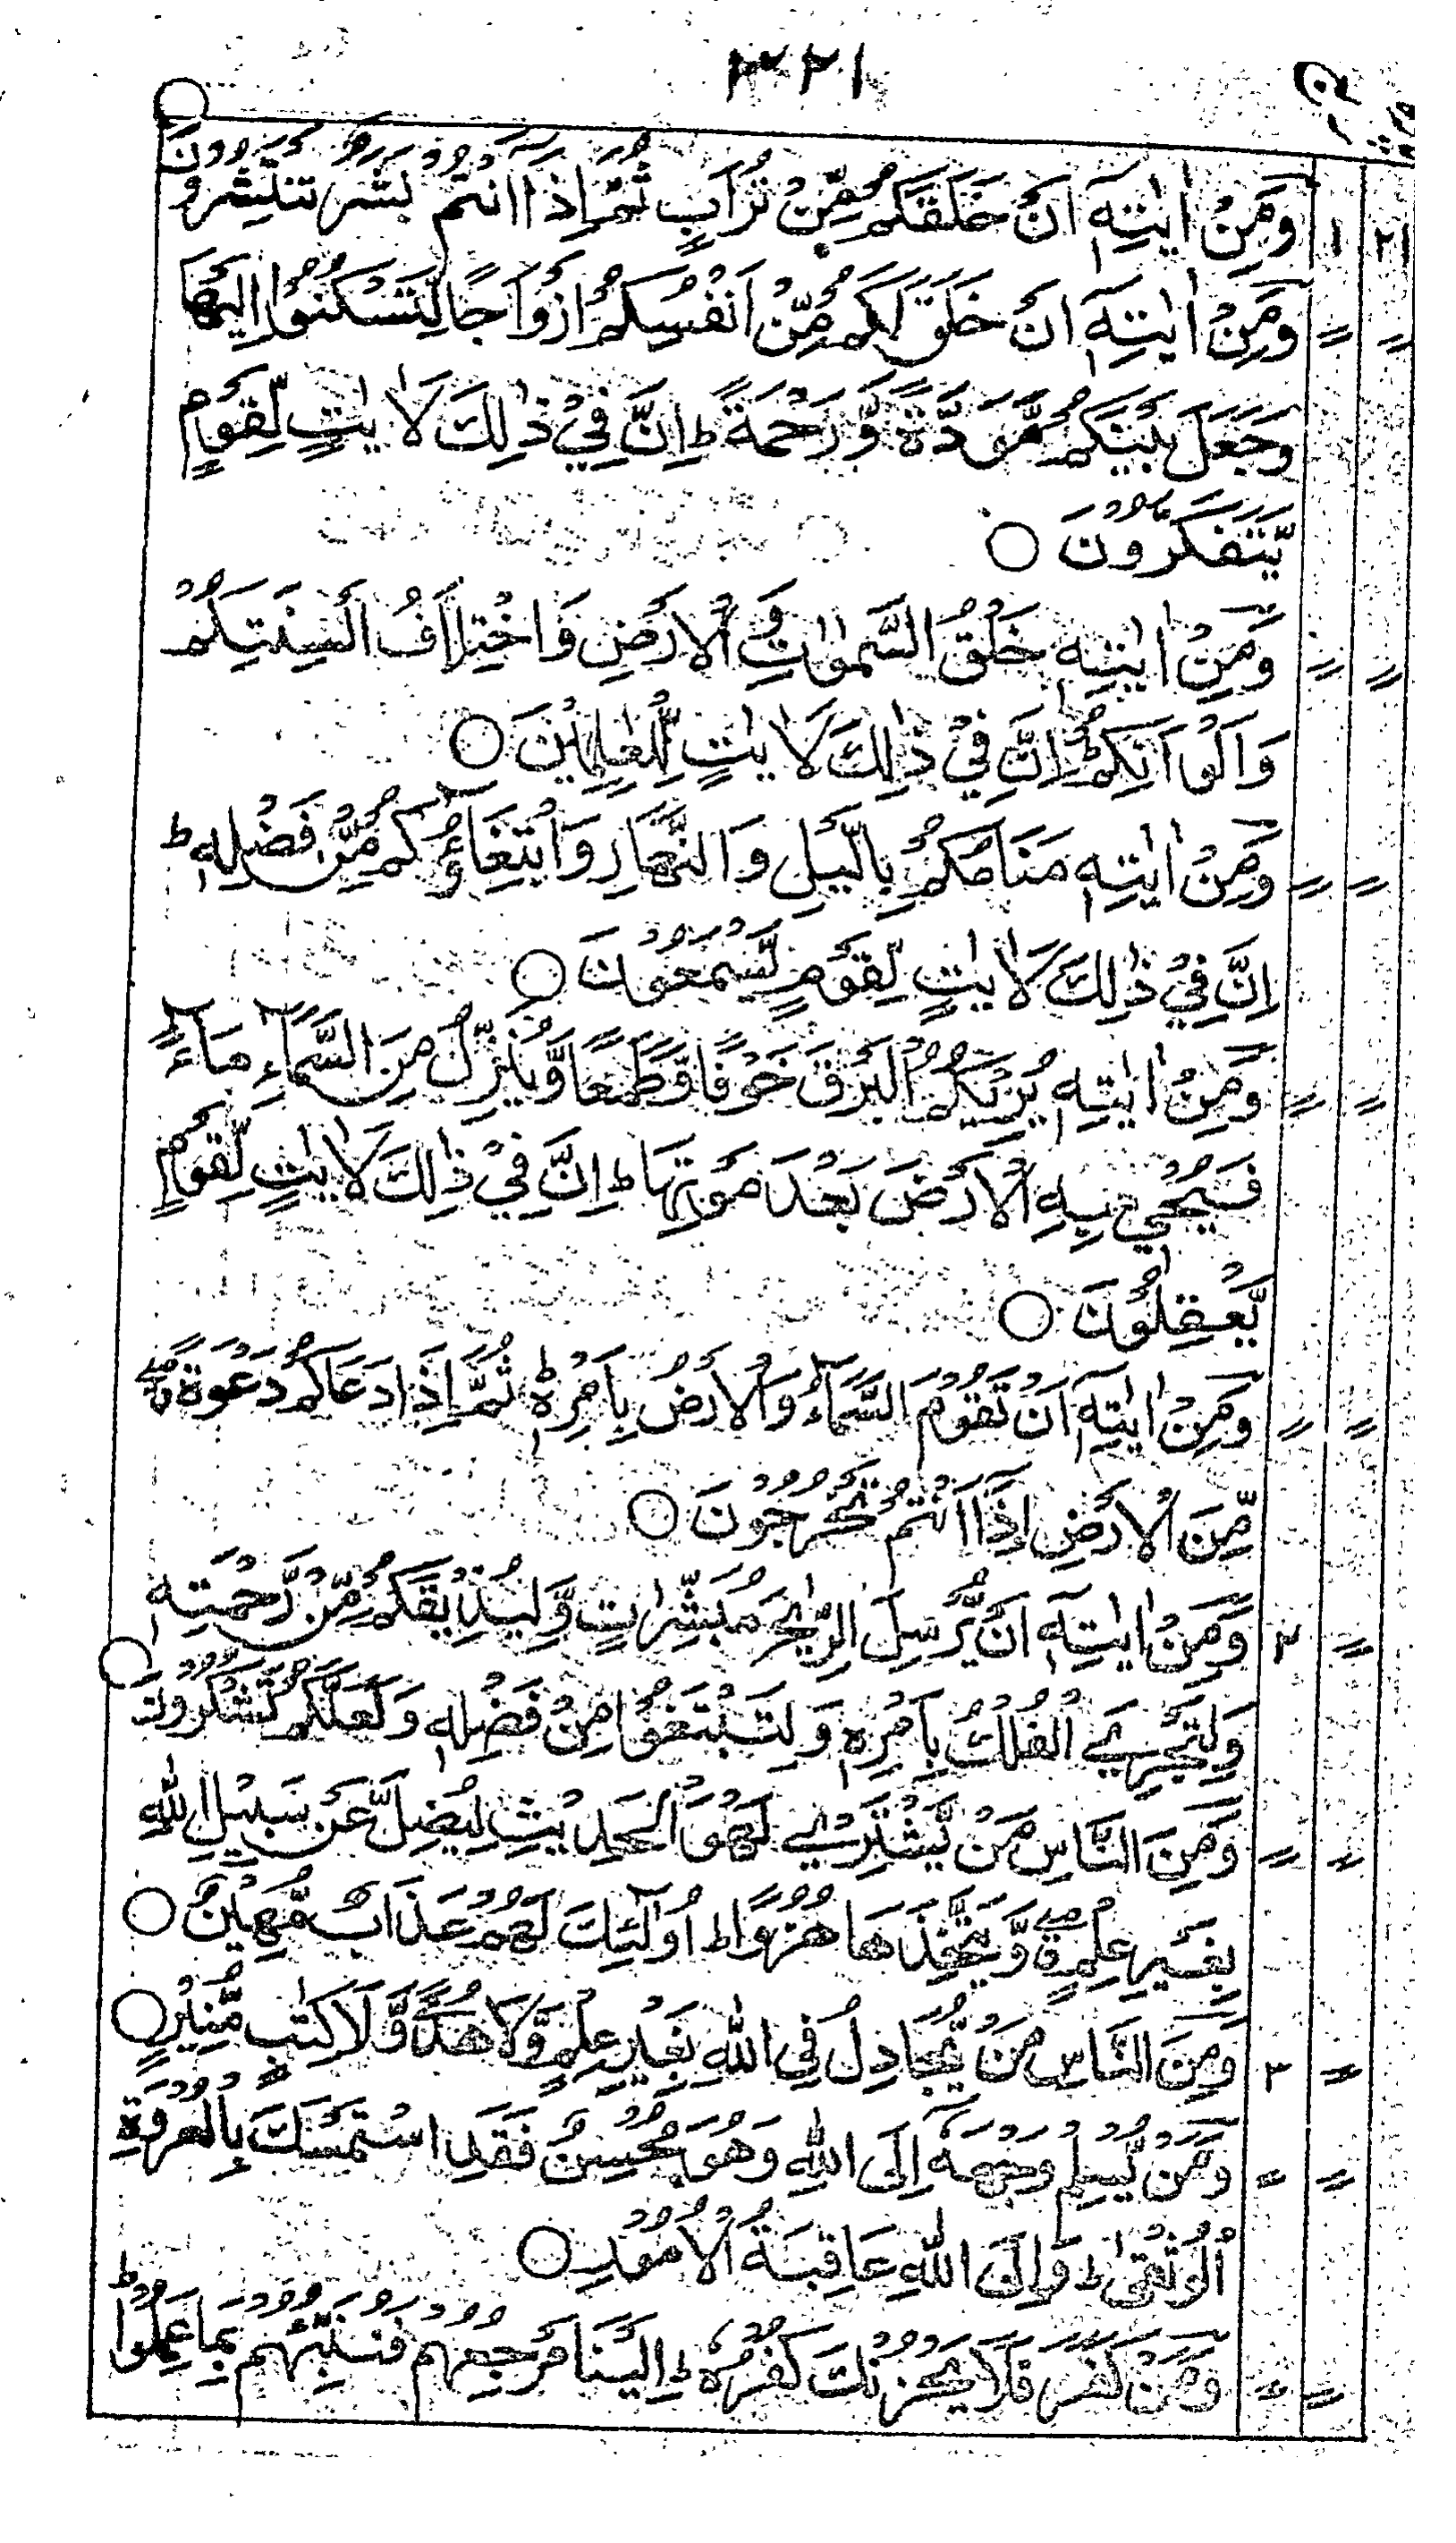 ٣٢١
وَمِنْ اٰيٰتِهٖٓ اَنْ خَلَقَكُمْ مِّنْ تُرَابٍ ثُمَّ اِذَا اَنْتُمْ بَشَرٌ تَنْتَشِرُوْنَ ○
وَمِنْ اٰيٰتِهٖٓ اَنْ خَلَقَ لَكُمْ مِّنْ اَنْفُسِكُمْ اَزْوَاجًا لِّتَسْكُنُوْٓا اِلَيْهَا
وَجَعَلَ بَيْنَكُمْ مَّوَدَّةً وَّرَحْمَةً ط اِنَّ فِيْ ذٰلِكَ لَاٰيٰتٍ لِّقَوْمٍ
يَّتَفَكَّرُوْنَ ○
وَمِنْ اٰيٰتِهٖ خَلْقُ السَّمٰوٰتِ وَالْاَرْضِ وَاخْتِلَافُ اَلْسِنَتِكُمْ
وَاَلْوَانِكُمْ ط اِنَّ فِيْ ذٰلِكَ لَاٰيٰتٍ لِّلْعٰلِمِيْنَ ○
وَمِنْ اٰيٰتِهٖ مَنَامُكُمْ بِالَّيْلِ وَالنَّهَارِ وَابْتِغَآؤُكُمْ مِّنْ فَضْلِهٖ ط
اِنَّ فِيْ ذٰلِكَ لَاٰيٰتٍ لِّقَوْمٍ يَّسْمَعُوْنَ ○
وَمِنْ اٰيٰتِهٖ يُرِيْكُمُ الْبَرْقَ خَوْفًا وَّطَمَعًا وَّيُنَزِّلُ مِنَ السَّمَآءِ مَآءً
فَيُحْيٖ بِهِ الْاَرْضَ بَعْدَ مَوْتِهَا ط اِنَّ فِيْ ذٰلِكَ لَاٰيٰتٍ لِّقَوْمٍ
يَّعْقِلُوْنَ ○
وَمِنْ اٰيٰتِهٖٓ اَنْ تَقُوْمَ السَّمَآءُ وَالْاَرْضُ بِاَمْرِهٖ ط ثُمَّ اِذَا دَعَاكُمْ دَعْوَةً
مِّنَ الْاَرْضِ اِذَا اَنْتُمْ تَخْرُجُوْنَ ○
وَمِنْ اٰيٰتِهٖٓ اَنْ يُّرْسِلَ الرِّيٰحَ مُبَشِّرٰتٍ وَّلِيُذِيْقَكُمْ مِّنْ رَّحْمَتِهٖ
وَلِتَجْرِيَ الْفُلْكُ بِاَمْرِهٖ وَلِتَبْتَغُوْا مِنْ فَضْلِهٖ وَلَعَلَّكُمْ تَشْكُرُوْنَ ○
وَمِنَ النَّاسِ مَنْ يَّشْتَرِيْ لَهْوَ الْحَدِيْثِ لِيُضِلَّ عَنْ سَبِيْلِ اللّٰهِ
بِغَيْرِ عِلْمٍ وَّيَتَّخِذَهَا هُزُوًا ط اُولٰٓئِكَ لَهُمْ عَذَابٌ مُّهِيْنٌ ○
وَمِنَ النَّاسِ مَنْ يُّجَادِلُ فِى اللّٰهِ بِغَيْرِ عِلْمٍ وَّلَا هُدًى وَّلَا كِتٰبٍ مُّنِيْرٍ ○
وَمَنْ يُّسْلِمْ وَجْهَهٗٓ اِلَى اللّٰهِ وَهُوَ مُحْسِنٌ فَقَدِ اسْتَمْسَكَ بِالْعُرْوَةِ
الْوُثْقٰى ط وَاِلَى اللّٰهِ عَاقِبَةُ الْاُمُوْرِ ○
وَمَنْ كَفَرَ فَلَا يَحْزُنْكَ كُفْرُهٗ ط اِلَيْنَا مَرْجِعُهُمْ فَنُنَبِّئُهُمْ بِمَا عَمِلُوْا ط